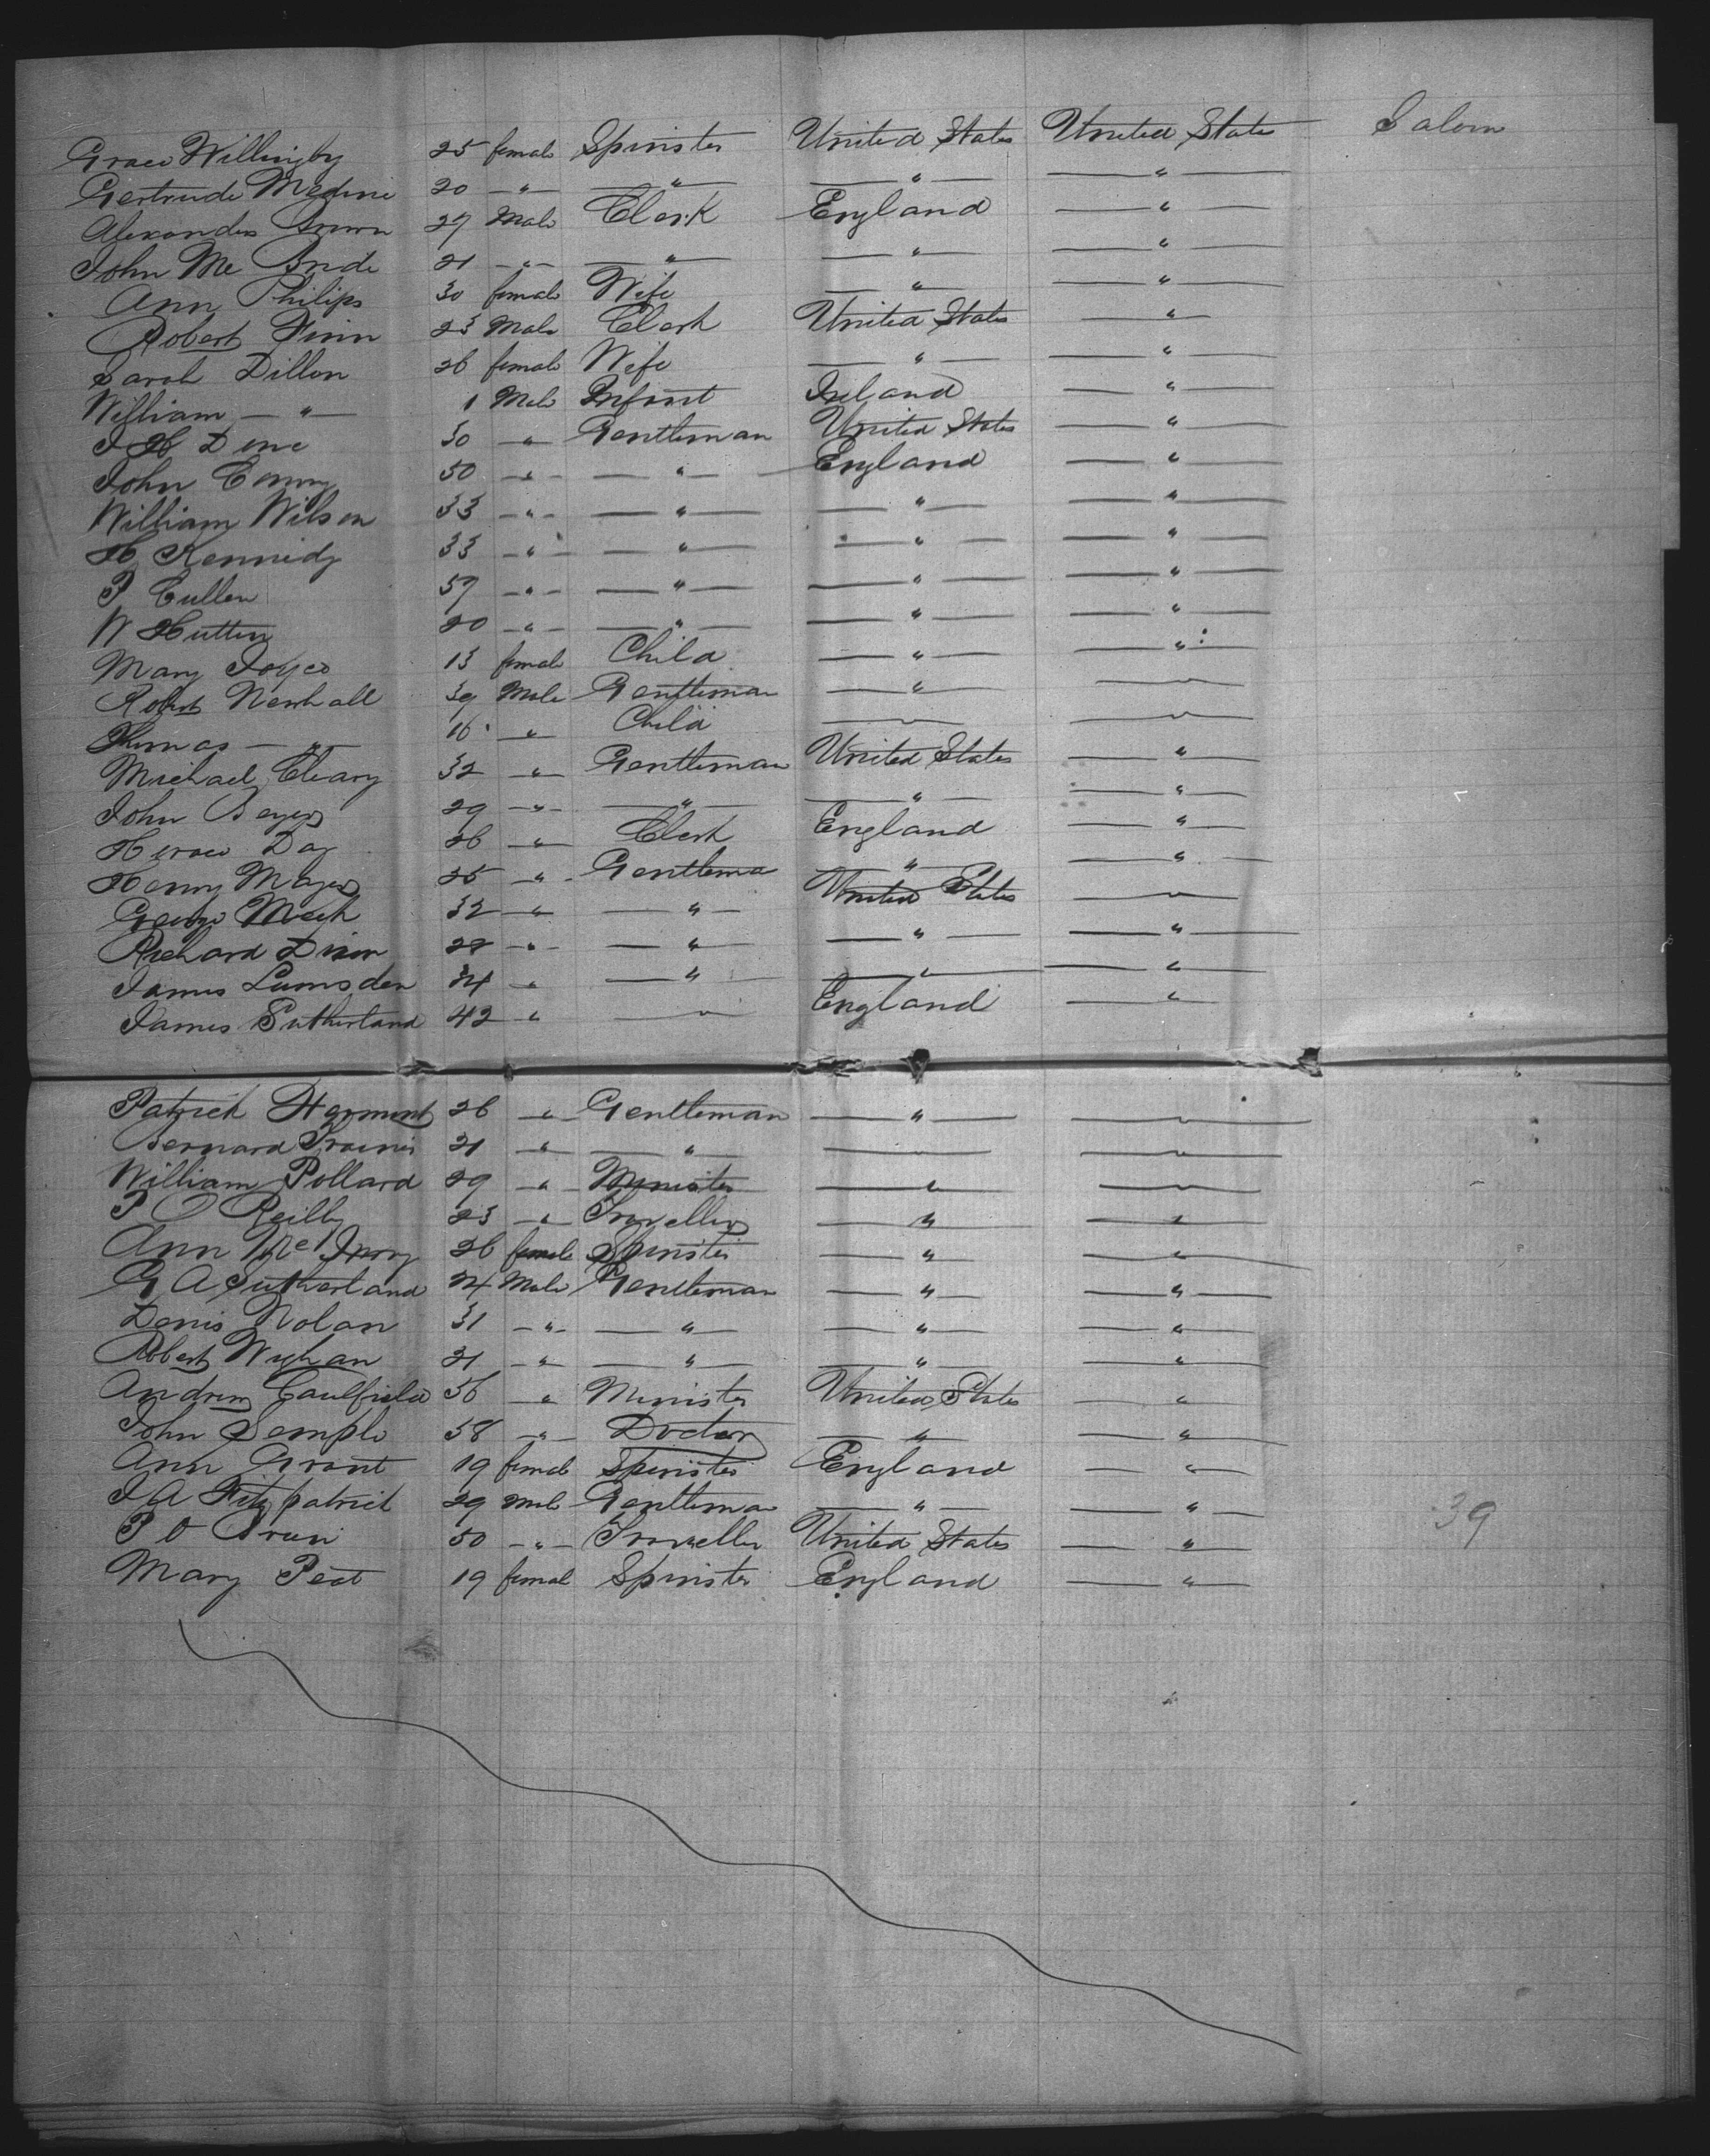 Grace Willingby 25 female Spinster United States United State Saloon
Gertrude Medini 20 — " — — " — — " — — " —
Alexander Brown 29 Male Clerk England — " —
John Mc Bride 21 — " — — " — — " — — " —
Ann Philips 30 female Wife — " — — " —
Robert Finn 23 Male Clerk United States — " —
Sarah Dillon 26 female Wife — " — — " —
William — " — 1 Male Infant Ireland — " —
30 — " Gentleman United States — " —
John 50 — " — — " — England — " —
William Wilson 33 — " — — " — — " — — " —
H Kennedy 33 — " — — " — — " — — " —
P Cullen 59 — " — — " — — " — — " —
W Hutton 20 — " — — " — — " — — " —
Mary Joyce 13 female Child — " — — " —
Robert Newhall 39 Male Gentleman — " — — " —
Thomas — " — 16 — " Child — " — — " —
Michael Cleary 32 — " Gentleman United States — " —
John 29 — " — — " — — " — — " —
Horace Day 26 — " Clerk England — " —
Henry Mayers 25 — " Gentlema — " — — " —
George 32 — " — " — United States — " —
Richard Dixon 22 — " — — " — — " — — " —
James Lumsden 34 — " — " — — " — — " —
James Sutherland 42 — " — " — England — " —
Patrick 26 — " Gentleman — " — — " —
Bernard 21 — " — " — — " — — " —
William Pollard 29 — " Minister — " — — " —
P O Reilly 23 — " Traveller — " — — " —
Ann Mc 26 female Spinster — " — — " —
G A Sutherland 24 Male Gentleman — " — — " —
Denis Nolan 31 — " — — " — — " — — " —
Robert 21 — " — — " — — " — — " —
Andrew Caulfield 56 — " Minister United States — " —
John Semple 58 — " — Doctor — " — — " —
Ann Grant 19 female Spinster England — " —
J A Fitzpatrick 29 Male Gentleman — " — — " —
P O 50 — " — Traveller United States — " — 39
Mary Peat 19 female Spinster England — " —